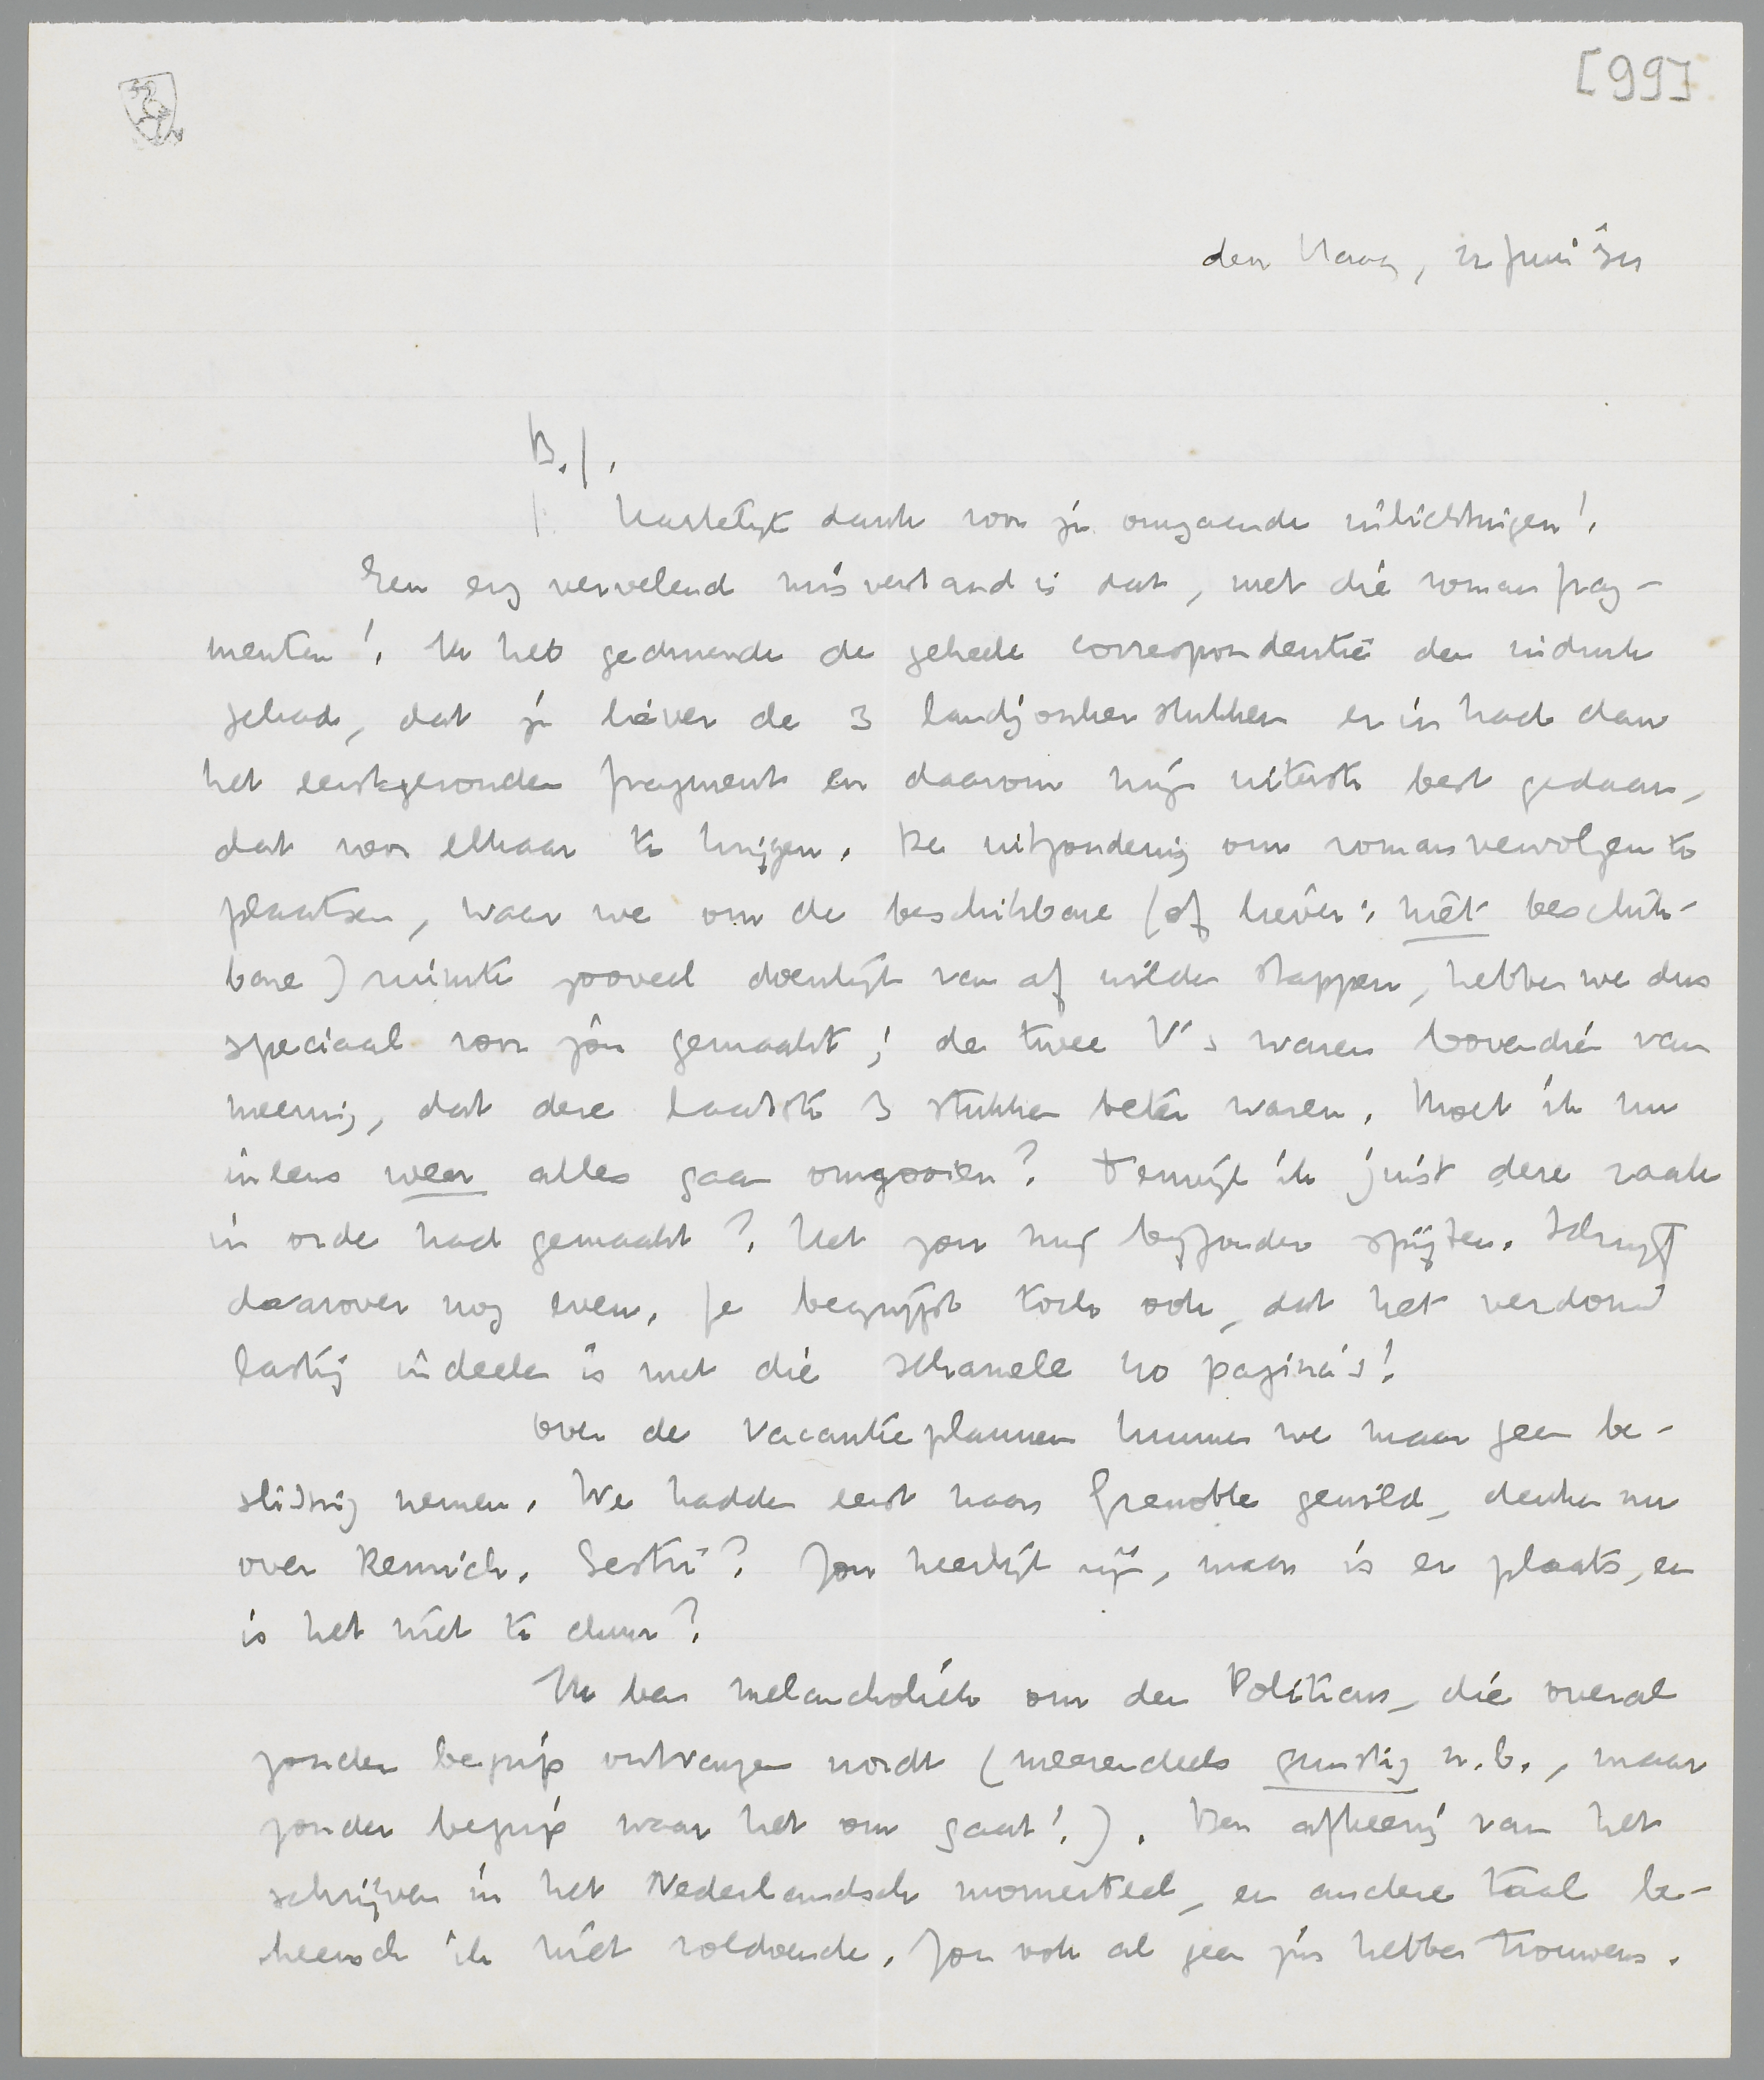 [99]
den Haag, juni
B.J.
Hartelijk dank voor je omgaande inlichtingen!
Een erg vervelend misverstand is dat, met die romanfrag-
menten! Ik heb gedurende de geheele correspondentie den indruk
gehad, dat je liever de 3 landjonker stukken er in had dan
het eerstgezonden fragment en daarom mijn uiterste best gedaan,
dat voor elkaar te krijgen. De uitzondering om romanvervolgen te
plaatsen, waar we om de beschikbare (of liever: niet beschik-
bare) ruimte zooveel doenlijk van af wilden stappen, hebben we dus
speciaal voor jou gemaakt; de twee V's waren bovendien van
meening, dat deze laatste 3 stukken beter waren. Moet ik nu
ineens weer alles gaan omgooien? Terwijl ik juist deze zaak
in orde had gemaakt? Het zou mij bijzonder spijten. Schrijf
daarover nog even. Je begrijpt toch ook, dat het verdomd
lastig indeelen is met die schamele 40 pagina's!
Over de vacantieplannen kunnen we maar geen be-
slissing nemen. We hadden eerst naar Grenoble gewild, denken nu
over Remich. Gestu? Zou heerlijk zijn, maar is er plaats, en
is het niet te duur?
Ik ben melancholiek om den Politicus, die overal
zonder begrip ontvangen wordt (meerendeels gunstig n.b., maar
zonder begrip waar het om gaat!). Ben afkeerig van het
schrijven in het Nederlandsch momenteel, en andere taal be-
heersch ik niet voldoende. Zou ook al geen zin hebben trouwens.